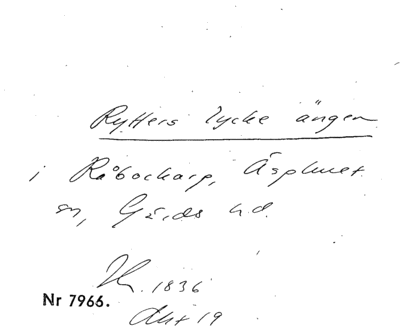 Rytters lycke ängen
i Råbockarp, Äsphult
sn, Gärds hd.
1836
Nr 7966.
Akt 19